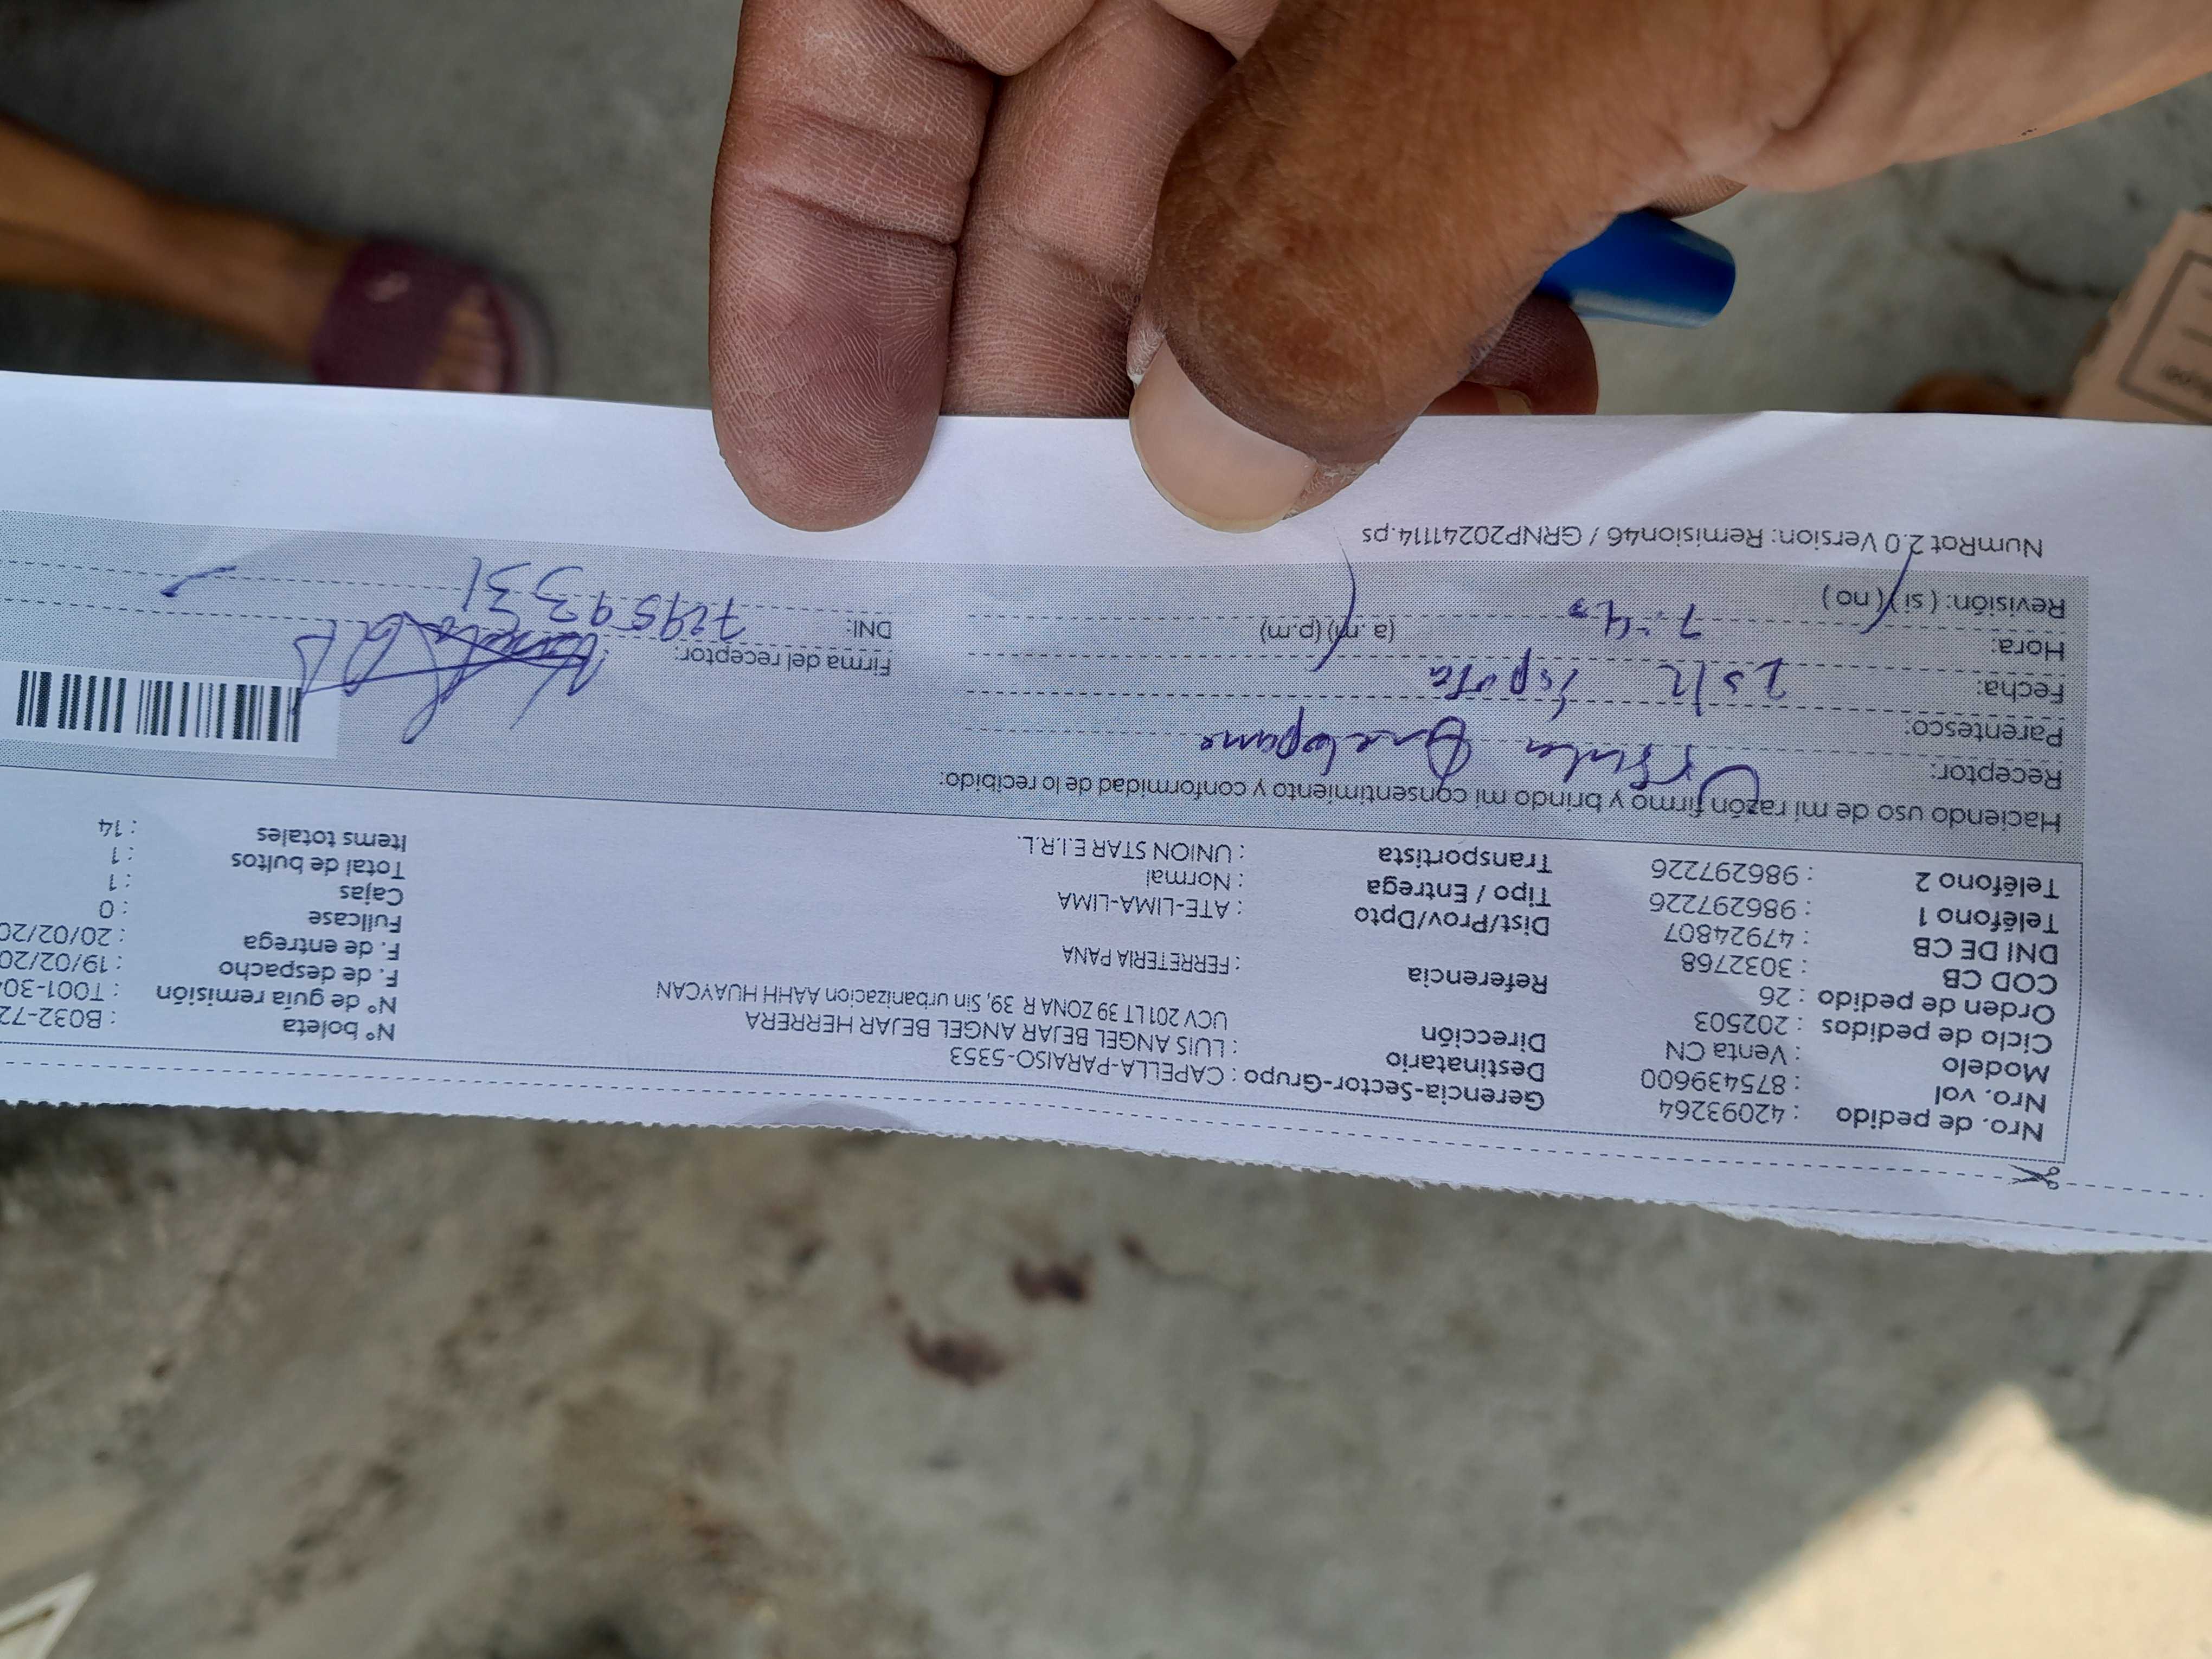 Nro. de pedido : 42093264
Nro. vol : 875439600
Modelo : Venta CN
Ciclo de pedidos : 202503
Orden de pedido : 26
COD CB : 3032768
DNI DE CB : 47924807
Teléfono 1 : 986297226
Teléfono 2 : 986297226
Gerencia-Sector-Grupo : CAPELLA-PARAISO-5353
Destinatario : LUIS ANGEL BEJAR ANGEL BEJAR HERRERA
Dirección UCV 201 LT 39 ZONA R 39, Sin urbanizacion AAHH HUAYCAN
Referencia : FERRETERIA PANA
Dist/Prov/Dpto : ATE-LIMA-LIMA
Tipo / Entrega : Normal
Transportista : UNION STAR E.I.R.L.
N° boleta : B032-72
N° de guía remisión : T001-30
F. de despacho : 19/02/20
F. de entrega : 20/02/20
Fullcase : 0
Cajas : 1
Total de bultos : 1
Items totales : 14
Haciendo uso de mi razón firmo y brindo mi consentimiento y conformidad de lo recibido:
Receptor:
Parentesco:
Fecha:
Hora: 7:40 (a.m) (p.m)
Revisión: (si) (no)
Firma del receptor:
DNI: 72959331
NumRot 2.0 Version: Remision46 / GRNP20241114.ps